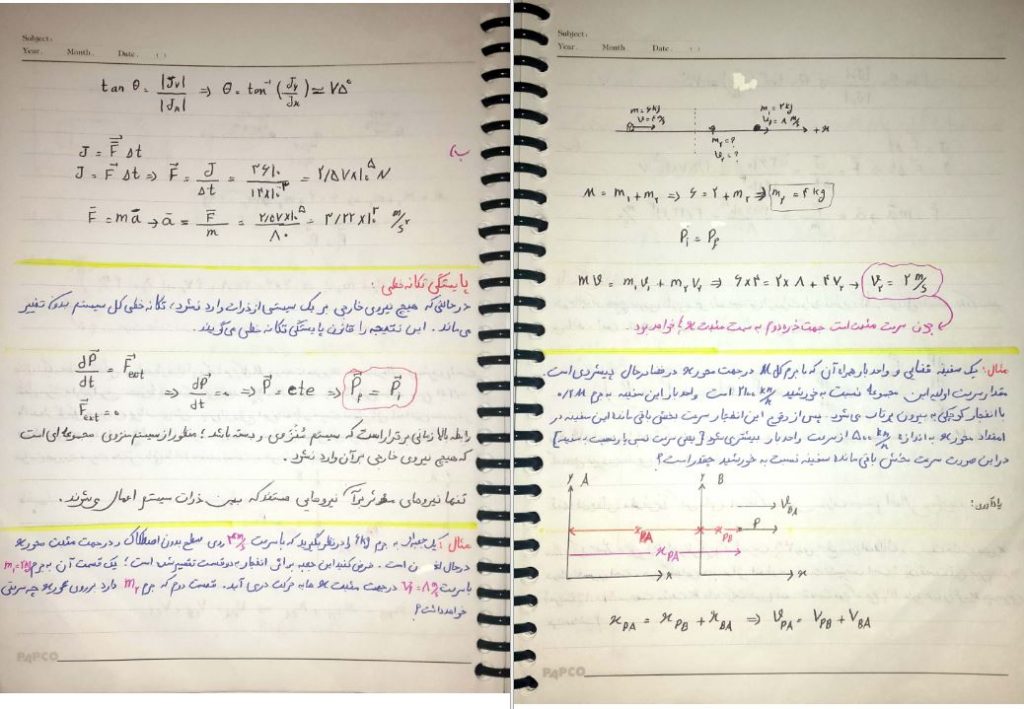 Subject:
Year. Month. Date. ( )
tan θ = |Jy| / |Jx| ⇒ θ = tan⁻¹ (Jy/Jx) ≃ ۷۵°
ب)
J = F̄ Δt
J = F̄ Δt ⇒ F̄ = J/Δt = ۳۶۱۰ / ۱۴×۱۰⁻³ = ۲/۵۷×۱۰⁵ N
F̄ = mā → ā = F̄/m = ۲/۵۷×۱۰⁵ / ۸۰ = ۳/۲۲×۱۰³ m/s²
پایستگی تکانه خطی:
در حالتی که هیچ نیروی خارجی بر یک سیستمی از ذرات وارد نشود، تکانه خطی کل سیستم بدون تغییر
می‌ماند. این نتیجه را قانون پایستگی تکانه خطی می‌گویند.
dP/dt = F_ext
F_ext = ۰ ⇒ dP/dt = ۰ ⇒ P = cte ⇒ P_f = P_i
رابطه بالا زمانی برقرار است که سیستم مُنْزَوی و بسته باشد؛ منظور از سیستم منزوی مجموعه ای است
که هیچ نیروی خارجی بر آن وارد نشود.
تنها نیروهای مؤثر بر آن نیروهایی هستند که بین ذرات سیستم اعمال می‌شوند.
مثال: یک جعبه‌ای به جرم ۶kg را در نظر بگیرید که با سرعت ۴m/s روی سطح بدون اصطکاک و در جهت مثبت محور x
در حال است. فرض کنید این جعبه بر اثر انفجار به دو قسمت تقسیم شده است؛ یک قسمت آن به جرم m₁=۲kg
با سرعت v₁=۸ m/s در جهت مثبت x ها به حرکت در می آید. قسمت دوم که جرم m₂ دارد بر روی محور x چه سرعتی
خواهد داشت؟
PAPCO
Subject:
Year. Month. Date. ( )
m=۶kg
v=۴m/s
m₁=۲kg
v₁=۸ m/s
+x
m₂=?
v₂=?
M = m₁+m₂ ⇒ ۶ = ۲+m₂ ⇒ m₂=۴kg
P_i = P_f
Mv = m₁v₁ + m₂v₂ ⇒ ۶×۴ = ۲×۸ + ۴v₂ → v₂ = ۲ m/s
چون سرعت مثبت است جهت ذره دوم به سمت مثبت x ها خواهد بود
مثال: یک سفینه فضایی و واحد بار همراه آن که با جرم کل M در جهت محور x در فضا در حال پیشروی است.
مقدار سرعت اولیه این مجموعه نسبت به خورشید ۲۱۰۰ km/h است واحد بار این سفینه به جرم ۰/۲M
با انفجار کوچکی به بیرون پرتاب می‌شود. پس از وقوع این انفجار سرعت بخش باقی مانده این سفینه در
امتداد محور x به اندازه ۵۰۰ km/h از سرعت واحد بار بیشتر می‌شود [یعنی سرعت نسبی بار نسبت به سفینه]
در این صورت سرعت بخش باقی مانده سفینه نسبت به خورشید چقدر است؟
یادآوری:
y A y B
v_BA
x_BA x_PB P
x_PA
x x
x_PA = x_PB + x_BA ⇒ v_PA = v_PB + v_BA
PAPCO